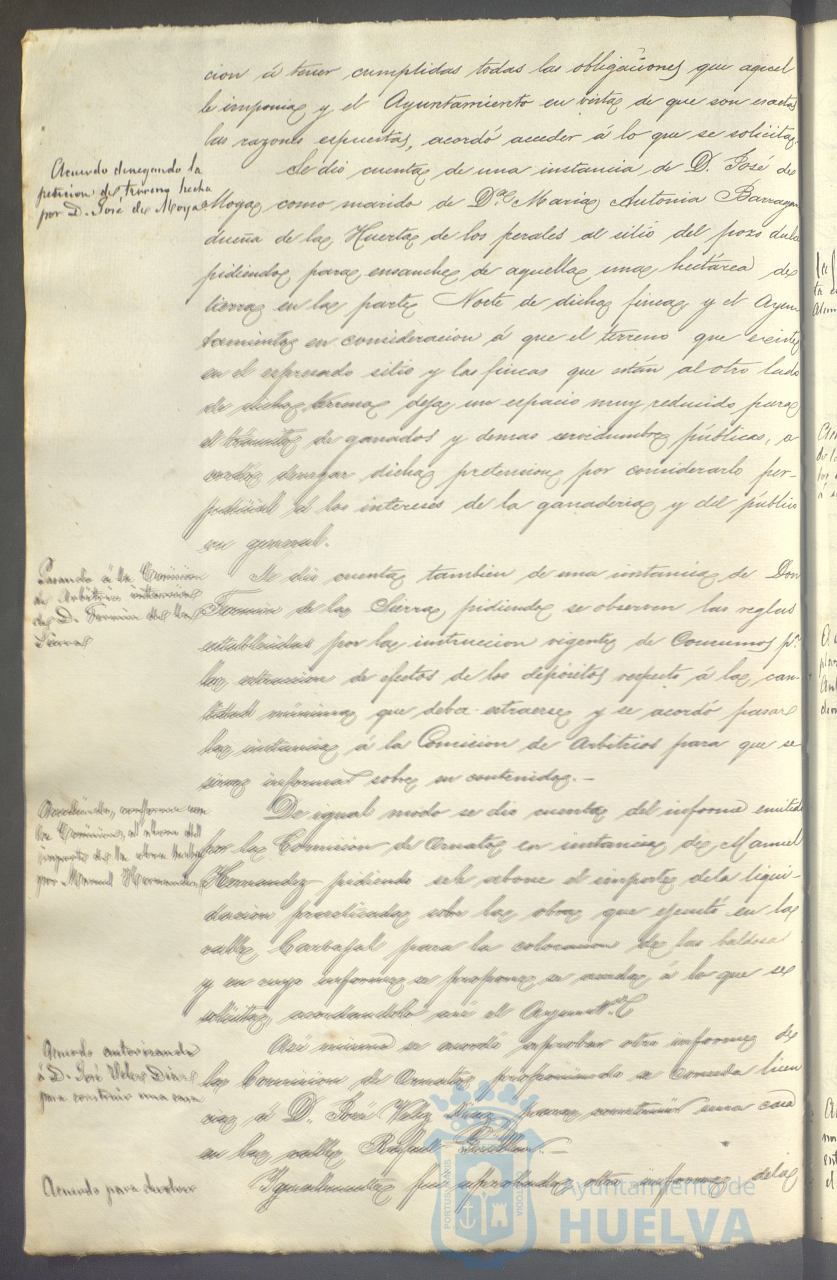 cion á tener cumplidas todas las obligaciones que aquel
le imponia y el Ayuntamiento en vista de que son exactas
las razones espuestas, acordó acceder á lo que se solicita.
Acuerdo denegando la
peticion de terreno hecha
por D. José de Moya
Se dio cuenta de una instancia de D. José de
Moya como marido de D.ª Maria Antonia Barragan
dueña de la Huerta de los perales al sitio del pozo dulce
pidiendo para ensanche de aquella una hectárea de
tierra en la parte Norte de dicha finca y el Ayun-
tamiento en consideracion á que el terreno que existe
en el espresado sitio y las fincas que están al otro lado
de dicho terreno deja un espacio muy reducido para
el tránsito de ganados y demas servidumbres públicas, a
cordó denegar dicha pretension por considerarlo per-
judicial á los intereses de la ganaderia y del público
en general.
Pasando á la Comision
de Arbitrios instancia
de D. Fermin de la
Sierra
Se dio cuenta tambien de una instancia de Don
Fermin de la Sierra pidiendo se observen las reglas
establecidas por la instruccion vigente de Consumos p.ª
la estraccion de efectos de los depósitos respecto á la can-
tidad mínima que deba estraerse y se acordó pasar
la instancia á la Comision de Arbitrios para que se
sirva informar sobre su contenido.—
Accediendo, conforme con
la Comision, al abono del
importe de la obra hecha
por Manuel Hernandez
De igual modo se dio cuenta del informe emitido
por la Comision de Ornato en instancia de Manuel
Hernandez pidiendo se le abone el importe de la liqui-
dacion practicada sobre la obra que ejecutó en la
calle Carbajal para la colocacion de las baldosas
y en cuyo informe se propone se acceda á lo que se
solicita acordandolo asi el Ayunt.º
Acuerdo autorizando
á D. José Velez Diaz
para construir una casa
Asi mismo se acordó aprobar otro informe de
la Comision de Ornato proponiendo se conceda licen
cia á D. José Velez Diaz para construir una casa
en la calle Rafael Guillen.—
Acuerdo para
Igualmente fue aprobado otro informe de la
PORTUS MARIS
CUSTODIA
Ayuntamiento de
HUELVA